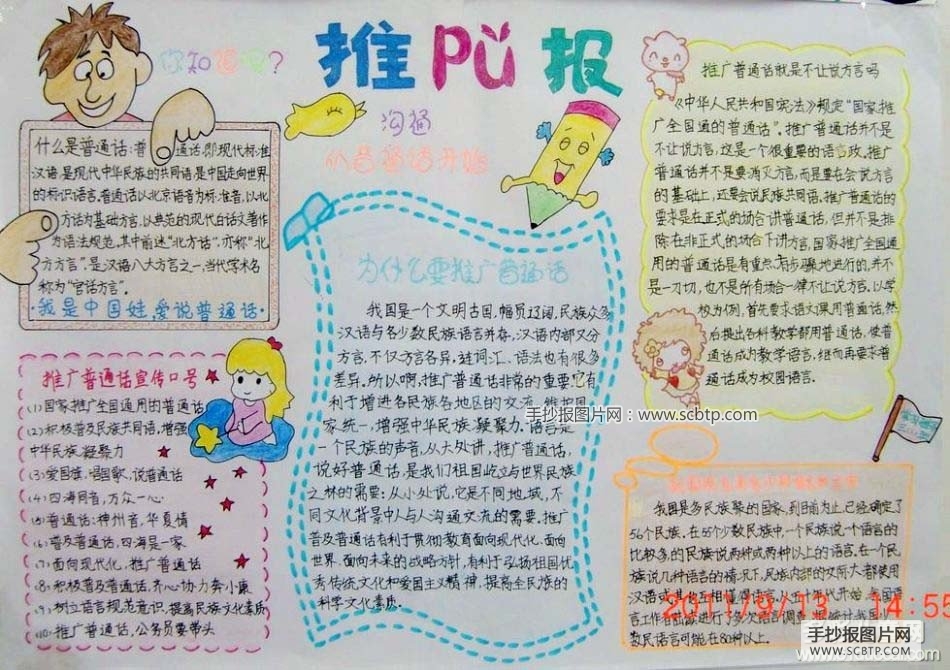 你知道吗?
推PU报
沟通
从普通话开始
什么是普通话:普 通话,即现代标准
汉语,是现代中华民族的共同语,是中国走向世界
的标识语言,普通话以北京语音为标准音,以北
方话为基础方言,以典范的现代白话文著作
为语法规范,其中前述“北方话”,亦称“北
方方言”,是汉语八大方言之一,当代学术名
称为“官话方言”。
·我是中国娃,爱说普通话·
推广普通话宣传口号
(1)国家推广全国通用的普通话
(2)积极普及民族共同语,增强
中华民族凝聚力
(3)爱国旗,唱国歌,说普通话
(4)四海同音,万众一心
(5)普通话:神州音,华夏情
(6)普及普通话,四海是一家
(7)面向现代化,推广普通话
(8)积极普及普通话,齐心协力奔小康
(9)树立语言规范意识,提高民族文化素质
(10)推广普通话,公务员要带头
为什么要推广普通话
我国是一个文明古国,幅员辽阔,民族众多
汉语与各少数民族语言并存,汉语内部又分
方言,不仅方言各异,连词汇、语法也有很多
差异。所以啊,推广普通话非常的重要,它有
利于增进各民族各地区的交流,维护国
家统一,增强中华民族凝聚力。语言是
一个民族的声音,从大处讲,推广普通话,
说好普通话,是我们祖国屹立与世界民族
之林的需要;从小处说,它是不同地域,不
同文化背景中人与人沟通交流的需要。推广
普及普通话有利于贯彻教育面向现代化,面向
世界,面向未来的战略方针,有利于弘扬祖国优
秀传统文化和爱国主义精神,提高全民族的
科学文化素质。
推广普通话就是不让说方言吗
《中华人民共和国宪法》规定“国家推
广全国通的普通话”。推广普通话并不是
不让说方言,这是一个很重要的语言政。推广
普通话并不是要消灭方言,而是要在会说方言
的基础上,还要会说民族共同语,推广普通话的
要求是在正式的场合讲普通话,但并不是排
除在非正式的场合下讲方言,国家推广全国通
用的普通话是有重点,有步骤地进行的,并不
是一刀切,也不是所有场合一律不让说方言,以学
校为例,首先要求语文课用普通话,然
后提出各科教学都用普通话,使普
通话成为教学语言,继而再要求普
通话成为校园语言.
我国是多民族聚的国家,到目前为止,已经确定了
56个民族,在55个少数民族中,一个民族说一个语言的
比较多的民族说两种或两种以上的语言,在一个民
族说几种语言的情况下,民族内部的双方大都使用
汉语或其他互相懂得语言,从50年代开始,我国语言
工作者陆续进行了多次语言调查,据统计我国少
数民语言可能在80种以上.
手抄报图片网:www.scbtp.com
2011/9/13 14:55
手抄报图片网
WWW.SCBTP.COM